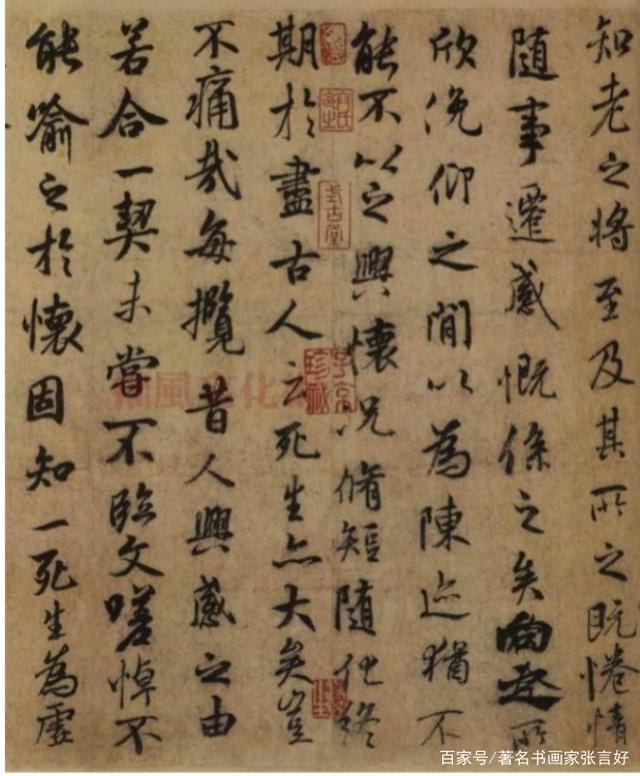 知老之将至及其所之既惓情
隨事遷感慨係之矣向之所
欣俛仰之間以為陳迹猶不
能不以之興懷況脩短隨化終
期於盡古人云死生亦大矣豈
不痛哉每攬昔人興感之由
若合一契未嘗不臨文嗟悼不
能喻之於懷固知一死生為虛
式古堂
百家号/著名书画家张言好